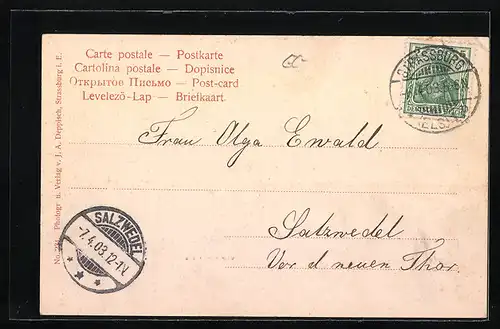 Carte postale — Postkarte
Cartolina postale — Dopisnice
Открытое Письмо — Post-card
Levelezö-Lap — Briefkaart.
STRASSBURG
ELS.
Frau Olga Ewald
Salzwedel
Vor d neuen Thor.
SALZWEDEL
-7.4.03.12-1.V.
Photogr. u. Verlag v. J. A. Deppisch, Strassburg i. E.